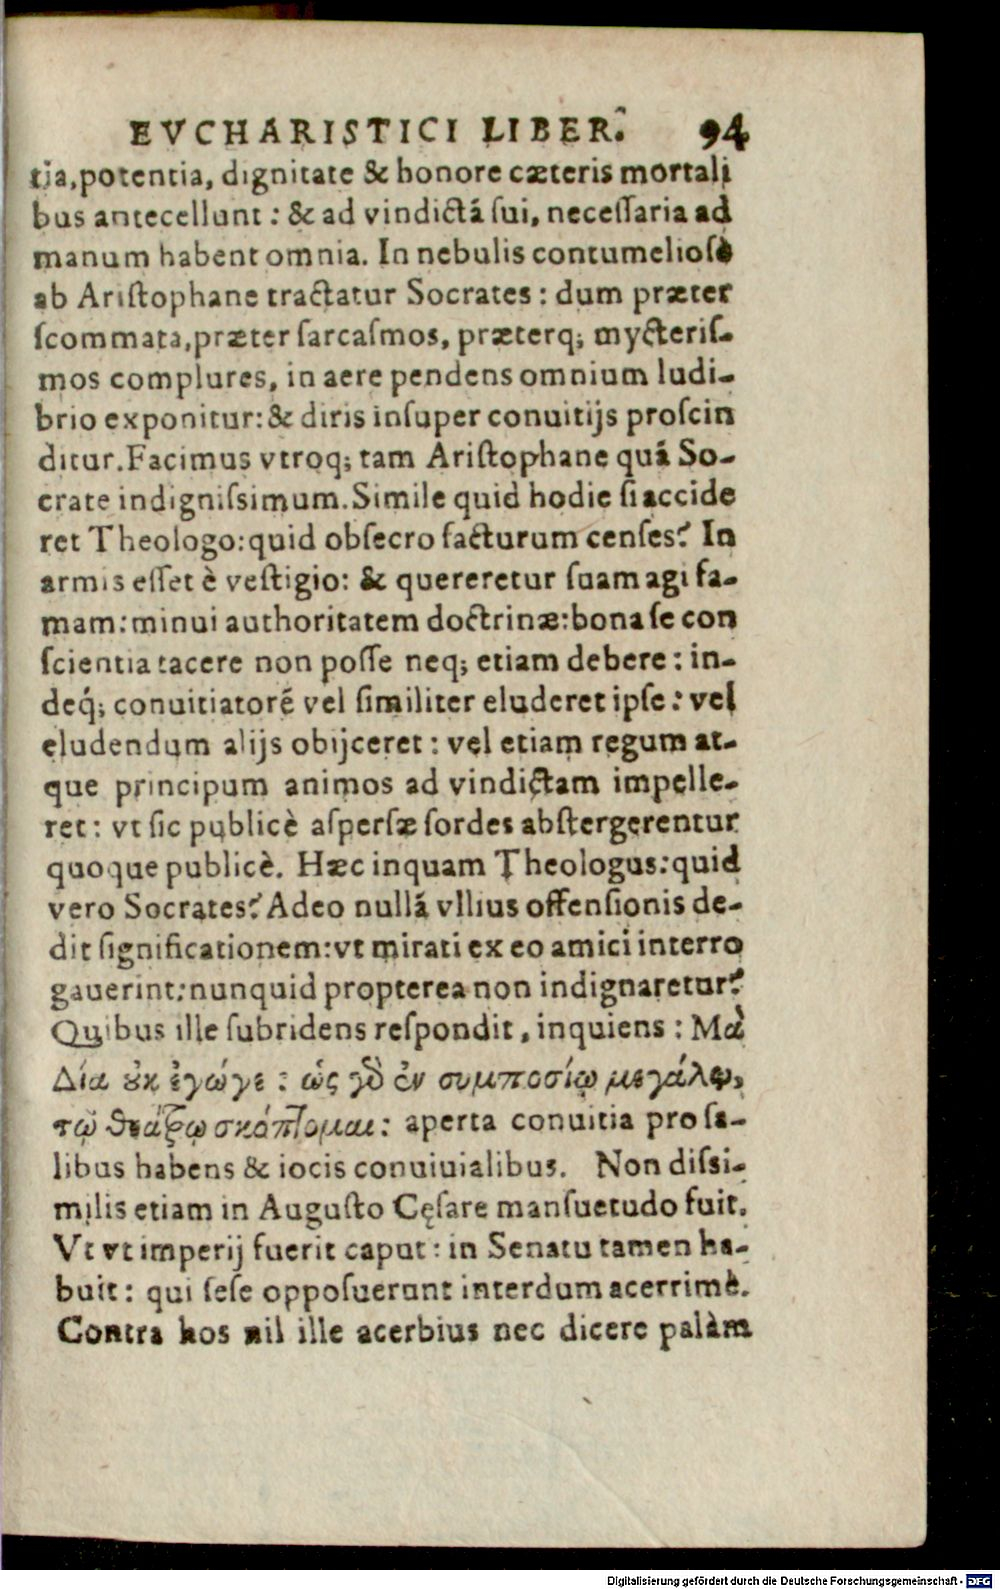 EVCHARISTICI LIBER. 94
tia,potentia, dignitate & honore cæteris mortali
bus antecellunt : & ad vindictá ſui, neceſſaria ad
manum habent omnia. In nebulis contumelioſè
ab Ariſtophane tractatur Socrates : dum præter
ſcommata,præter ſarcaſmos, præterq; mycteriſ-
mos complures, in aere pendens omnium ludi-
brio exponitur:& diris inſuper conuitijs proſcin
ditur.Facimus vtroq; tam Ariſtophane quá So-
crate indigniſsimum.Simile quid hodie ſi accide
ret Theologo:quid obſecro facturum cenſes? In
armis eſſet è veſtigio: & quereretur ſuam agi fa-
mam:minui authoritatem doctrinæ:bona ſe con
ſcientia tacere non poſſe neq; etiam debere : in-
deq́; conuitiatoré vel ſimiliter eluderet ipſe : vel
eludendum alijs obijceret : vel etiam regum at-
que principum animos ad vindictam impelle-
ret : vt ſic publicè aſperſæ ſordes abſtergerentur
quoque publicè. Hæc inquam Theologus:quid
vero Socrates? Adeo nullá vllius offenſionis de-
dit ſignificationem:vt mirati ex eo amici interro
gauerint:nunquid propterea non indignaretur?
Quibus ille ſubridens reſpondit, inquiens : Μὰ
Δία ȣκ ἐγώγε : ὡς γδ̀ ἐν συμποσίῳ μεγάλῳ,
τῷ θεάτρῳ σκόπτομαι: aperta conuitia pro ſa-
libus habens & iocis conuiuialibus. Non diſsi-
milis etiam in Auguſto Cęſare manſuetudo fuit.
Vt vt imperij fuerit caput : in Senatu tamen ha-
buit : qui ſeſe oppoſuerunt interdum acerrimè.
Contra hos nil ille acerbius nec dicere palàm
Digitalisierung gefördert durch die Deutsche Forschungsgemeinschaft - DFG